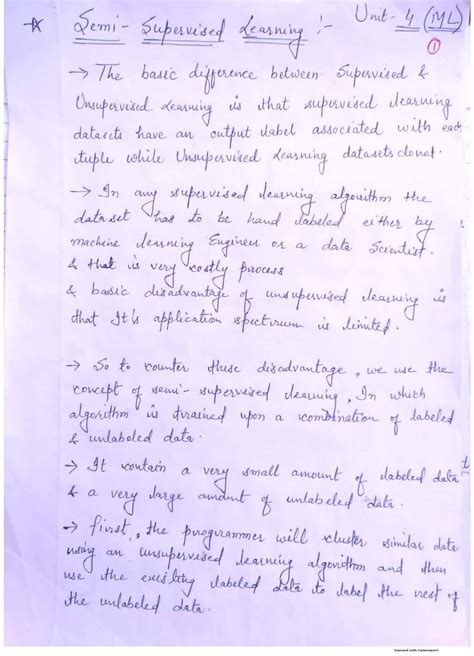 Unit- 4 (ML)
* Semi- Supervised Learning :-
①
→ The basic difference between Supervised &
Unsupervised Learning is that supervised learning
datasets have an output label associated with each
tuple while Unsupervised Learning datasets donot.
→ In any supervised learning algorithm the
dataset has to be hand labeled either by
machine learning Engineer or a data Scientist.
& that is very costly process
& basic disadvantage of unsupervised learning is
that It's application spectrum is limited.
→ So to counter these disadvantage, we use the
concept of semi- supervised learning, In which
algorithm is trained upon a combination of labeled
& unlabeled data.
→ It contain a very small amount of labeled data
& a very large amount of unlabeled data.
→ first, the programmer will cluster similar data
using an unsupervised learning algorithm and then
use the existing labeled data to label the rest of
the unlabeled data.
Scanned with CamScanner